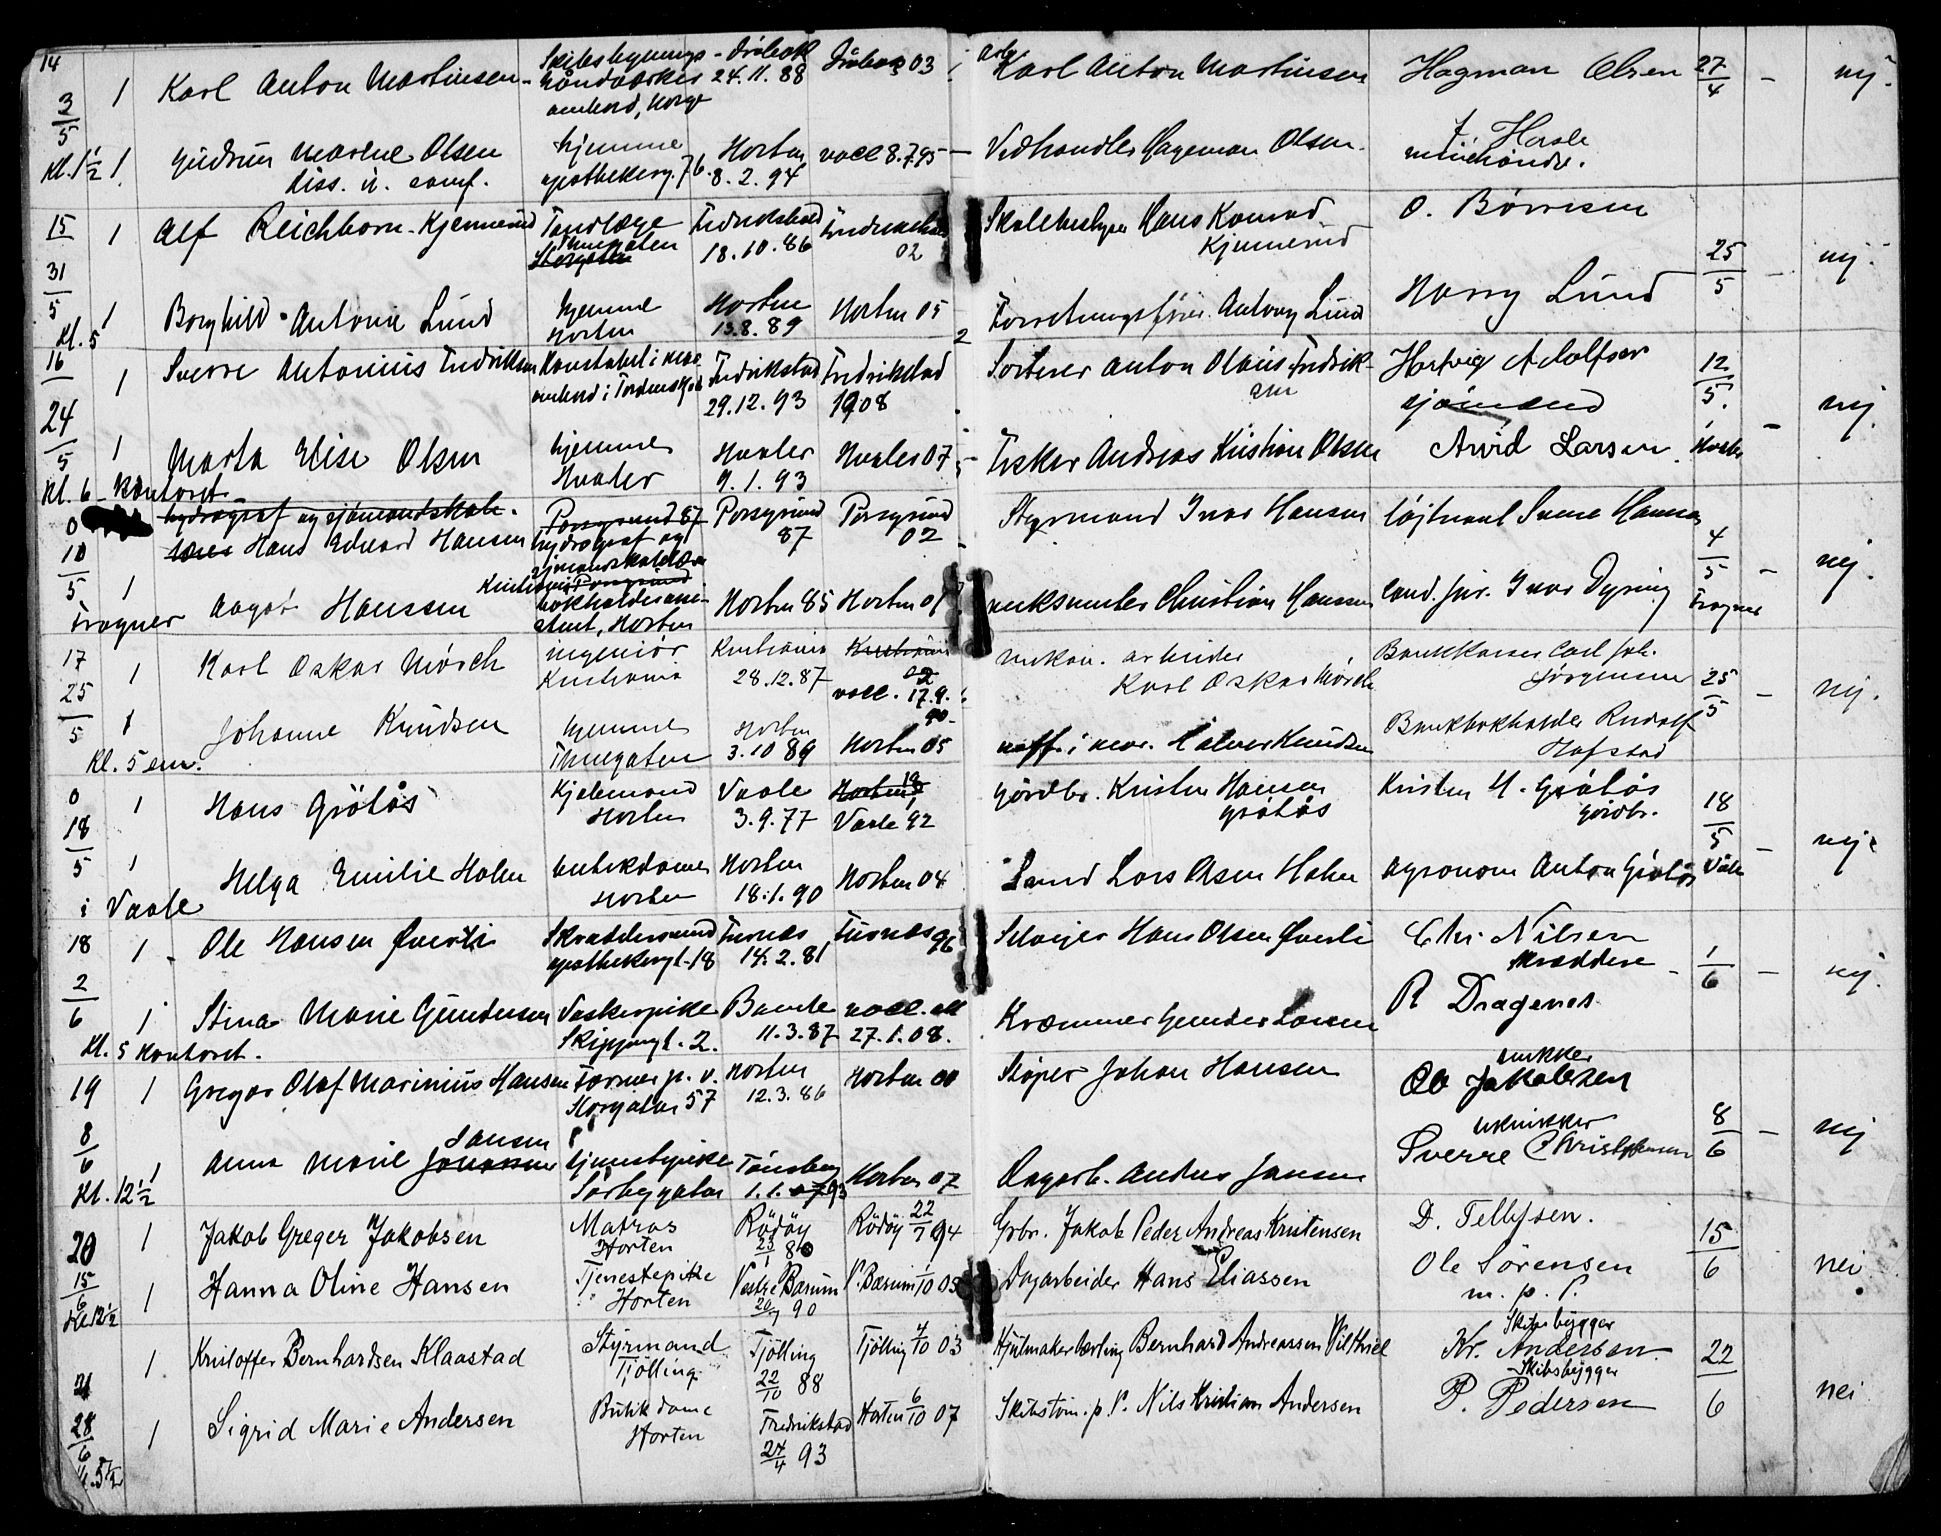 14 1 Karl Anton Martinsen Skibsbygnings- Dröbak Dröbak 03 arb. Karl Anton Martinsen Hagman Olsen 27/4 - nej.
3/5 håndværker 24.11.88
ombord, Norge
Kl. 1 1/2 1 Gudrun Marene Olsen hjemme Horten vacc 8.7.95 Vedhandler Hageman Olsen
diss. u. conf. apothekerg. 76. 8.2.94
15 1 Alf Reichborn-Kjennerud Tandlæge Fredrikshald Fredrikshald Skolebestyrer Hans Konrad O. Börresen
Thuegaten 18.10.86 02 Kjennerud 25/5 - nej.
Storgaten
31/5 1 Borghild Antonie Lund hjemme Horten Horten 05 Forretningsförer Antony Lund Harry Lund
Kl. 5 Horten 13.8.89
16 1 Sverre Antonius Fredriksen Konstabel i mar. Fredrikstad Fredrikstad Sorterer Anton Olaus Fredrik- Hartvig Adolfsen 12/5.
ombord i Tordenskjold 29.12.93 1908 sen sjömand - nej.
24/5 1 Marta Elise Olsen hjemme Hvaler Hvaler 07 Fisker Andreas Kristian Olsen Arvid Larsen Horten
Kl. 6 Kontoret Hvaler 9.1.93
0 hydrograf og sjömandskole- Porsgrund 87 Porsgrund Porsgrund Styrmand Ivar Hansen löjtnant Sverre Hansen
10/5 lærer Hans Edvard Hansen hydrograf og 87 02 4/5 - nej.
sjömandskolelærer
Kristiania Porsgrund
1 Aagot Hanssen bokholderassi- Horten 85 Horten 01 Christian Hanssen Cand. jur. Ivar Dyring Frogner
Frogner stent, Horten
17 1 Karl Oskar Mörch ingeniör Kristiania Kristiania mekan. arbeider Bankkasser Carl Joh.
25/5 Kristiania 28.12.87 02 Karl Oskar Mörch Jörgensen 25/5 - nej.
vacc. 17.9.90
1 Johanne Knudsen hjemme Horten Horten 05 uoff. i mar. Halvor Knudsen Bankbokholder Rudolf
Kl. 5 em. Thuegaten 3.10 89 Hofstad
0 1 Hans Grötås Kjelemand Vaale Horten Gårdbr. Kristen Hansen Kristen H. Grötås
18/5 Horten 3.9.77 Vaale 92 Grötås Gårdbr. 18/5 - nej
1 Helga Emilie Holen butikdame Horten Horten 04 Lars Olsen Holen agronom Anton Grötås Våle
i Vaale Horten 18.1.90
18 1 Ole Hansen Överli Skræddersvend Furnæs Furnæs 96 Selveier Hans Olsen Överli Chr. Nilsen
apothekergt. 18 14.2.81 skræddere - 1/6 - nej.
2/6 1 Stina Marie Gundersen Vaskerpike Bamle vacc. att Kræmmer Gunder Larsen R Dragenes
Kl. 5 Kontoret. Skippergt. 2. 11.3.87 27.1.08.
19 1 Gregor Olaf Marinius Hansen Former p. v. Horten Horten 00 Stöper Johan Hansen snekker
Storgaten 57 12.3.86 Ole Jakobsen
8/6 1 Anna Marie Jansen Johansen tjenestepike Tönsberg Horten 07 Dagarb. Anders Jansen 8/6 - nej
Kl. 12 1/2 Sörbygaten 1.1. 93 Sverre Christophersen
20 1 Jakob Greger Jakobsen Matros Rödöy Rödöy 22/7 94 Grbr. Jakob Peder Andreas Kristensen D. Tellefsen.
Horten 80 15/6
15/6 1 Hanna Oline Hansen Tjenestepike Vestre Bærum V. Bærum 1/10 05 Dagarbeider Hans Eliassen Ole Sörensen nei.
Kl 12 1/2 Horten 90 m. p. V.
1 Kristoffer Bernhardsen Klaastad Styrmand Tjölling Tjölling 4/10 03 Hjulmaker Bernhard Andreassen Skibsbygger
Tjölling 22/10 88 Kr. Andersen. 22/6
21 Skibsbygger
28/6 1 Sigrid Marie Andersen Butikdame Fredrikstad Horten 6/10 07 Skibstöm. p. V. Nils Kristian Andersen P. Pedersen nei
Kl. 5 1/2 Horten 24/4 93